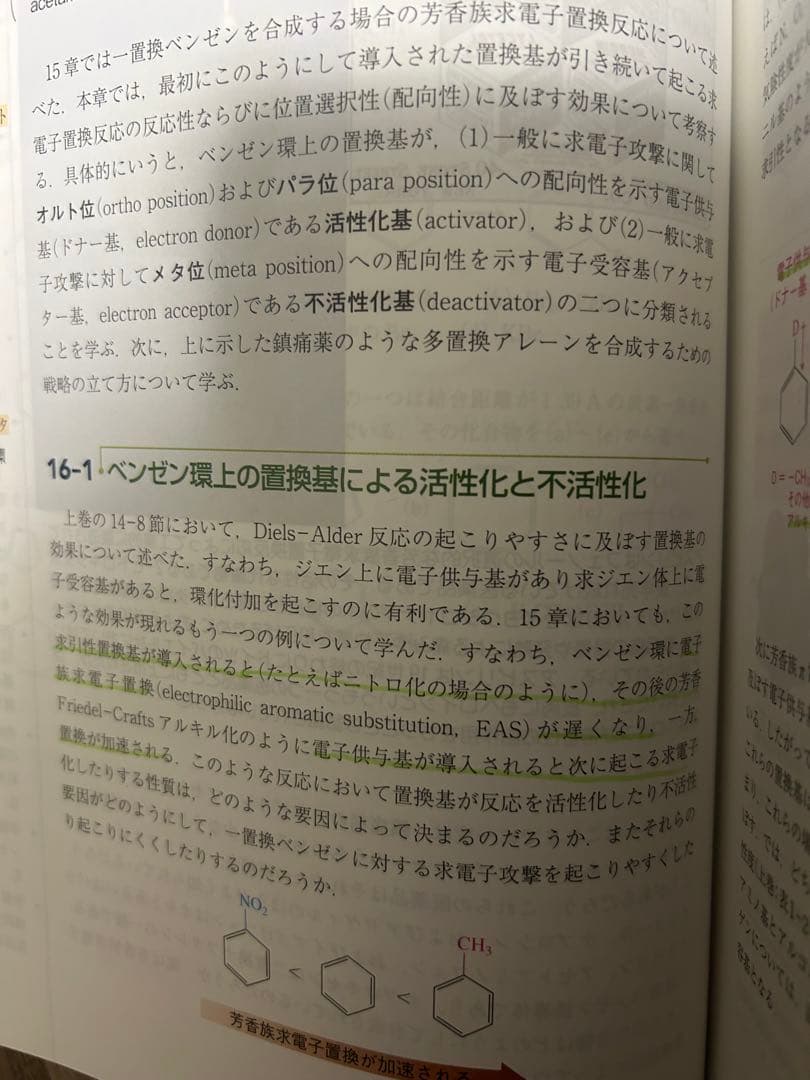 15章では一置換ベンゼンを合成する場合の芳香族求電子置換反応について述
べた．本章では，最初にこのようにして導入された置換基が引き続いて起こる求
電子置換反応の反応性ならびに位置選択性(配向性)に及ぼす効果について考察す
る．具体的にいうと，ベンゼン環上の置換基が，(1)一般に求電子攻撃に関して
オルト位(ortho position)およびパラ位(para position)への配向性を示す電子供与
基(ドナー基，electron donor)である活性化基(activator)，および(2)一般に求電
子攻撃に対してメタ位(meta position)への配向性を示す電子受容基(アクセプ
ター基，electron acceptor)である不活性化基(deactivator)の二つに分類される
ことを学ぶ．次に，上に示した鎮痛薬のような多置換アレーンを合成するための
戦略の立て方について学ぶ．
16-1 ベンゼン環上の置換基による活性化と不活性化
上巻の14-8節において，Diels-Alder反応の起こりやすさに及ぼす置換基の
効果について述べた．すなわち，ジエン上に電子供与基があり求ジエン体上に電
子受容基があると，環化付加を起こすのに有利である．15章においても，この
ような効果が現れるもう一つの例について学んだ．すなわち，ベンゼン環に電子
求引性置換基が導入されると(たとえばニトロ化の場合のように)，その後の芳香
族求電子置換(electrophilic aromatic substitution, EAS)が遅くなり，一方，
Friedel-Craftsアルキル化のように電子供与基が導入されると次に起こる求電子
置換が加速される．このような反応において置換基が反応を活性化したり不活性
化したりする性質は，どのような要因によって決まるのだろうか．またそれらの
要因がどのようにして，一置換ベンゼンに対する求電子攻撃を起こりやすくした
り起こりにくくしたりするのだろうか．
NO2
<
<
CH3
芳香族求電子置換が加速される